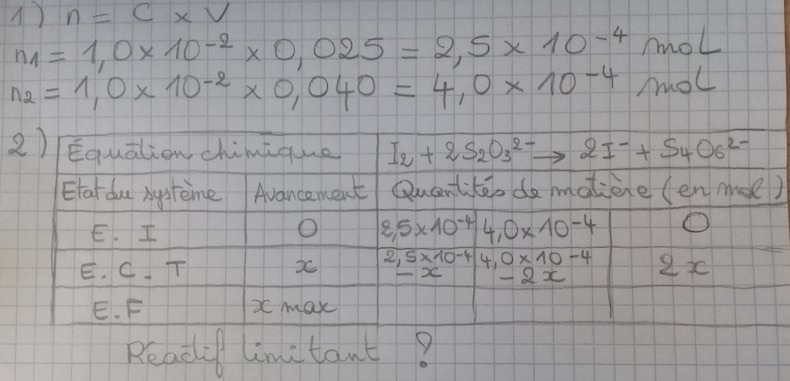 1) n = C × V
n1 = 1,0 × 10⁻² × 0,025 = 2,5 × 10⁻⁴ mol
n2 = 1,0 × 10⁻² × 0,040 = 4,0 × 10⁻⁴ mol
2) Équation chimique I2 + 2S2O3²⁻ → 2I⁻ + S4O6²⁻
Etat du système Avancement Quantités de matière (en mol)
E. I 0 2,5×10⁻⁴ 4,0×10⁻⁴ 0
E.C.T x 2,5×10⁻⁴ - x 4,0×10⁻⁴ - 2x 2x
E.F x max
Réactif limitant ?